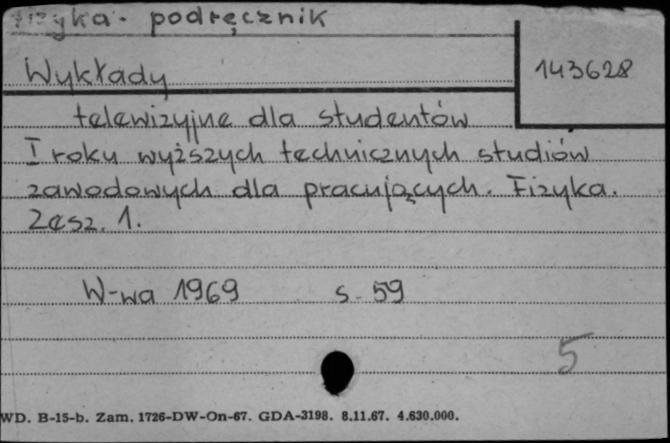 fizyka - podręcznik
143628
Wykłady
telewizyjne dla studentów
I roku wyższych technicznych studiów
zawodowych dla pracujących. Fizyka.
Zesz. 1.
W-wa 1969 s. 59
5
WD. B-15-b. Zam. 1726-DW-On-67. GDA-3198. 8.11.67. 4.630.000.